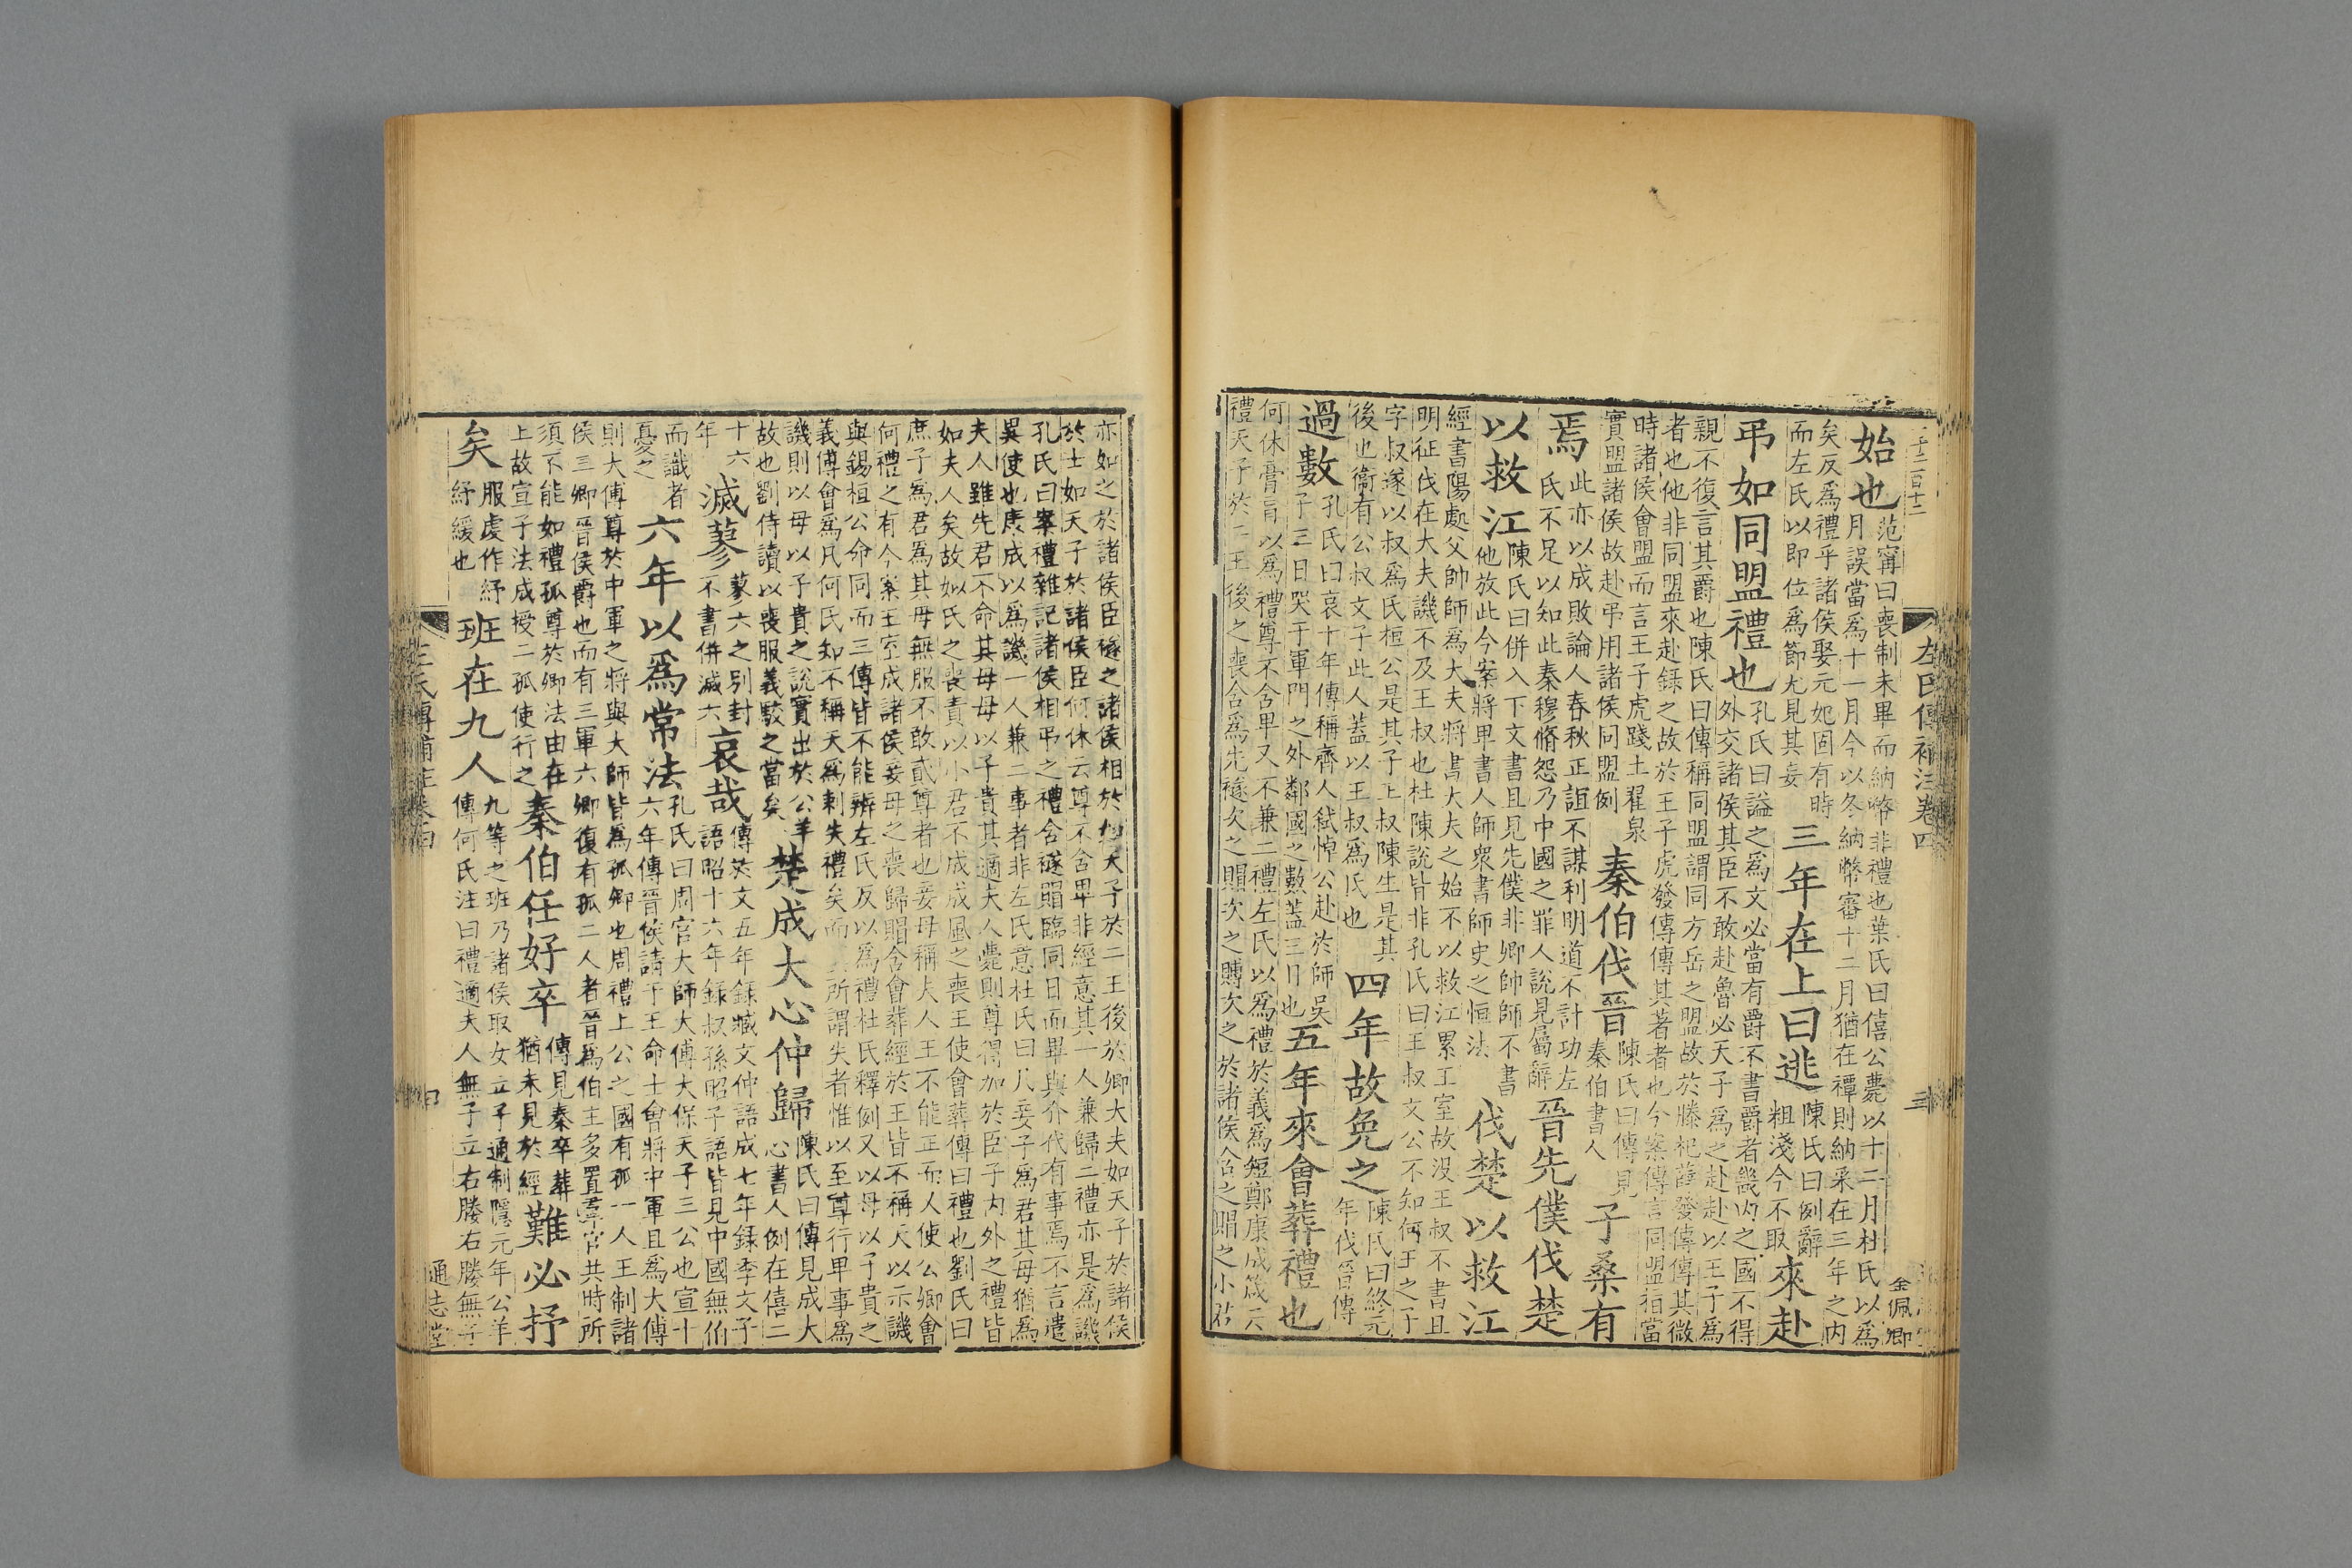 左氏傳補注卷四
三
金佩卿
始也
范甯曰喪制未畢而納幣非禮也葉氏曰僖公薨以十二月杜氏以爲
月誤當爲十一月今以冬納幣審十二月猶在禫則納采在三年之内
矣反爲禮乎諸侯娶元妃固有時
而左氏以即位爲節尤見其妄
三年在上曰逃
陳氏曰例辭
粗淺今不取
來赴
弔如同盟禮也
孔氏曰謚之爲文必當有爵不書爵者畿内之國不得
外交諸侯其臣不敢赴魯必天子爲之赴赴以王子爲
親不復言其爵也陳氏曰傳稱同盟謂同方岳之盟故於滕杞薛發傳傳其微
者也他非同盟來赴錄之故於王子虎發傳傳其著者也今案傳言同盟指當
時諸侯會盟而言王子虎踐土翟泉
實盟諸侯故赴弔用諸侯同盟例
秦伯伐晉
陳氏曰傳見
秦伯書人
子桑有
焉
此亦以成敗論人春秋正誼不謀利明道不計功左
氏不足以知此秦穆脩怨乃中國之罪人說見屬辭
晉先僕伐楚
以救江
陳氏曰併入下文書且見先僕非卿帥師不書
他放此今案將卑書人師衆書師史之恒法
伐楚以救江
經書陽處父帥師爲大夫將書大夫之始不以救江累王室故没王叔不書且
明征伐在大夫譏不及王叔也杜陳說皆非孔氏曰王叔文公不知何王之子
字叔遂以叔爲氏桓公是其子王叔陳生是其
後也衞有公叔文子此人蓋以王叔爲氏也
四年故免之
陳氏曰終元
年伐晉傳
過數
孔氏曰哀十年傳稱齊人弑悼公赴於師吳
子三日哭于軍門之外鄰國之數蓋三日也
五年來會葬禮也
何休膏肓以爲禮尊不含卑又不兼二禮左氏以爲禮於義爲短鄭康成箴云
禮天子於二王後之喪含爲先襚次之賵次之賻次之於諸侯含之賵之小君
亦如之於諸侯臣襚之諸侯相於如天子於二王後於卿大夫如天子於諸侯
於士如天子於諸侯臣何休云尊不含卑非經意其一人兼歸二禮亦是爲譏
孔氏曰案禮雜記諸侯相弔之禮含襚賵臨同日而畢與介代有事焉不言遣
異使也康成以爲譏一人兼二事者非左氏意杜氏曰凡妾子爲君其母猶爲
夫人雖先君不命其母母以子貴其適夫人薨則尊得加於臣子内外之禮皆
如夫人矣故姒氏之喪責以小君不成成風之喪王使會葬傳曰禮也劉氏曰
庶子爲君爲其母無服不敢貳尊者也妾母稱夫人王不能正而又使公卿會
何禮之有今案王室成諸侯妾母之喪歸賵含會葬經於王皆不稱天以示譏
與錫桓公命同而三傳皆不能辨左氏反以爲禮杜氏釋例又以母以子貴之
義傅會爲凡何氏知不稱天爲刺失禮矣而所謂失者惟以至尊行卑事爲
譏則以母以子貴之說實出於公羊
故也劉侍讀以喪服義駁之當矣
楚成大心仲歸
陳氏曰傳見成大
心書人例在僖二
十六
年
滅蓼
蓼六之别封
不書併滅六
哀哉
傳於文五年錄臧文仲語成七年錄季文子
語昭十六年錄叔孫昭子語皆見中國無伯
而識者
憂之
六年以爲常法
孔氏曰周官大師大傅大保天子三公也宣十
六年傳晉侯請于王命士會將中軍且爲大傅
則大傅尊於中軍之將與大師皆爲孤卿也周禮上公之國有孤一人王制諸
侯三卿晉侯爵也而有三軍六卿復有孤二人者晉爲伯主多置羣官共時所
須不能如禮孤尊於卿法由在
上故宣子法成授二孤使行之
秦伯任好卒
傳見秦卒葬
猶未見於經
難必抒
矣
服虔作紓
紓緩也
班在九人
九等之班乃諸侯取女立子通制隱元年公羊
傳何氏注曰禮適夫人無子立右媵右媵無子
通志堂